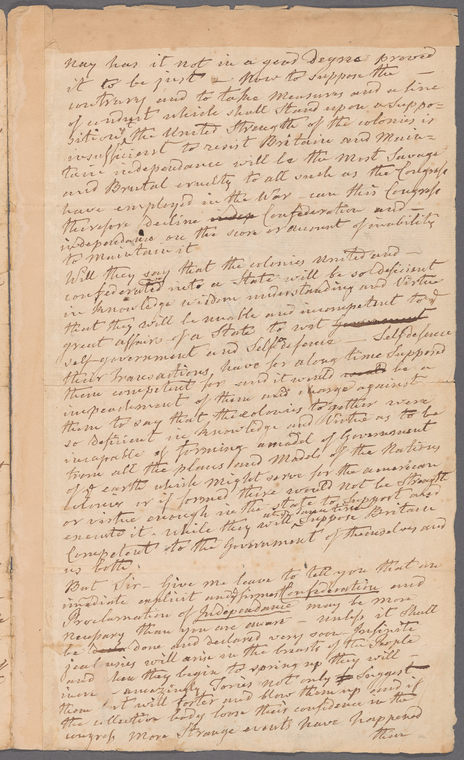 Nay has it not in a good Degree proved
it to be just — Now to suppose the —
contrary and to take Measures and a line
of conduct which shall Stand upon a suppo-
sition yt the United Strength of the colonies is
insufficient to resist Britain and Main-
tain independance will be the Most Savage
and Brutal cruelty to all such as the Congress
have employed in the War — can this Congress
therefore Decline indep Confederation and —
independance on the score or account of inability
to Maintain it
Will they say that the colonies United and —
confederated into a State will be so deficient
in Knowledge wisdom understanding and Virtue
that they will be unable and incompetent to ye
great affairs of a State to wit government
self-government and Self defence — Self defence
their transactions have for along time Supposed
them competent for and it would be a
impeachment of them and charge against
them to say that the colonies together were
so deficient in Knowledge and Virtue as to be
incapable of forming a model of Government
from all the plans and Models of the Nations
of ye earth which Might serve for the american
colonies or if formed there would not be Strength
or virtue enough in the State to Support and
execute it — while they will at ye same time Suppose Britain
Competent to the Government of themselves and
us both.
But Sir — Give me leave to tell you that an
imediate explicit and firmest Confederation and
Proclamation of Independance may be more
necessary than you are aware — unless it Shall
be done and declared very soon Infinite
jealousies will arise in the breasts of the People
and when they begin to spring up they will —
increase amazingly Tories not only Suggest
them but will foster and blow them up and if
the collective body loose their confidence in the
congress More Strange events have happened
than